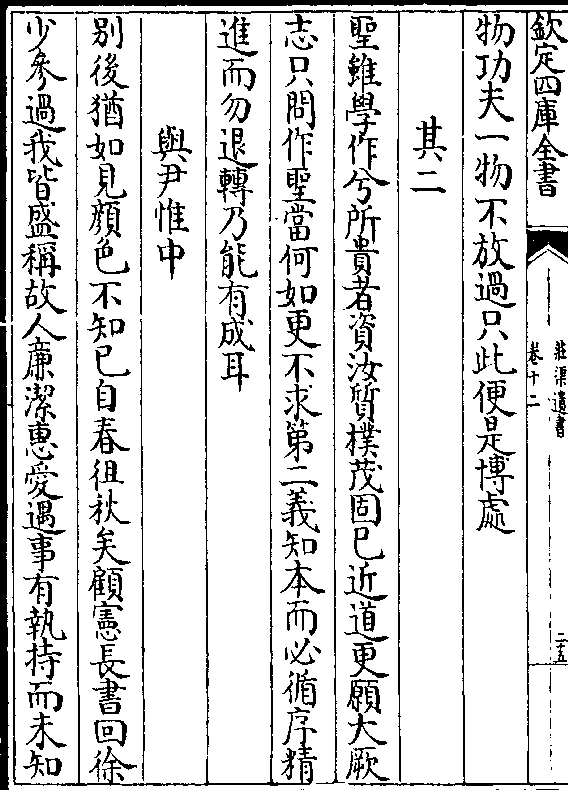 欽定四庫全書
莊渠遺書
卷十二
二五
物功夫一物不放過只此便是博處
其二
聖雖學作兮所貴者資汝質樸茂固已近道更願大厥
志只問作聖當何如更不求第二義知本而必循序精
進而勿退轉乃能有成耳
與尹惟中
别後猶如見顔色不知已自春徂秋矣顧憲長書回徐
少參過我皆盛稱故人廉潔惠愛遇事有執持而未知